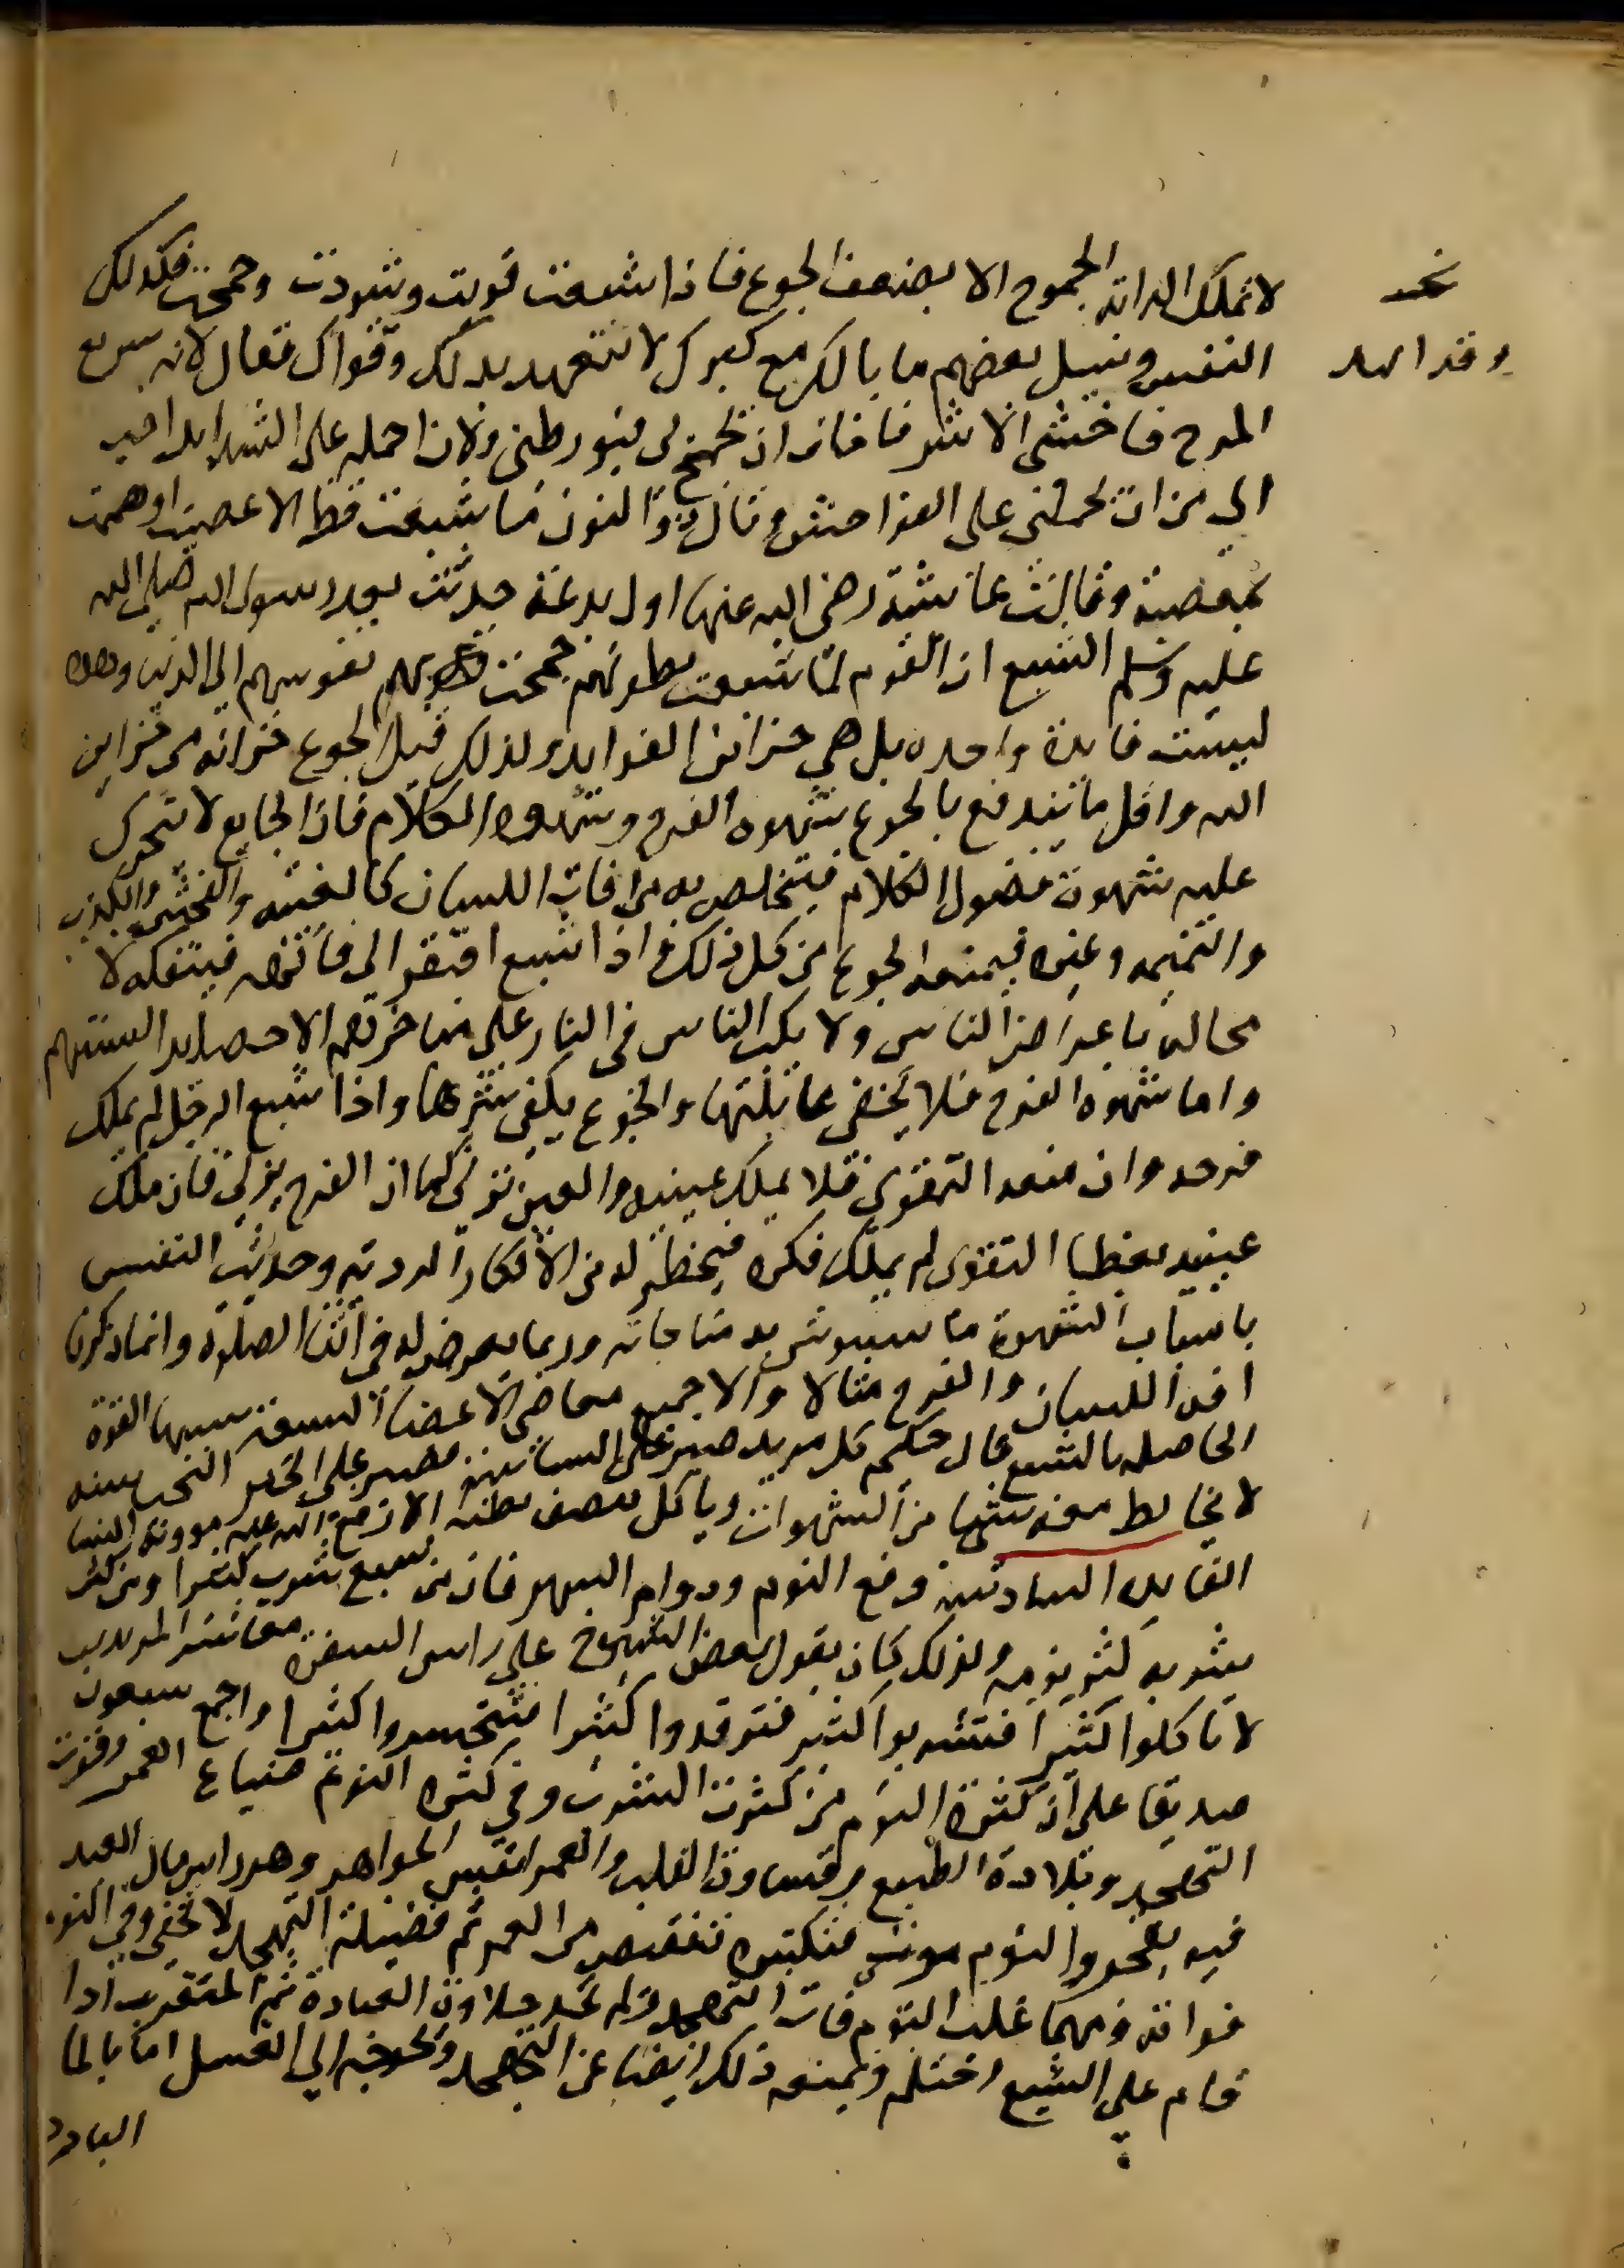 لا تملك الدابة الجموح الا بضعف الجوع فاذا شبعت قويت وشردت وجمحت فكذلك
النفس وقيل لبعضهم ما بالك مع كبرك لا تتعهد بدنك وقواك فقال لانه سريع
المرح فاخشى الاشر فاخاف ان يجمح بي فيورطني ولان احمله على الشدايد احب
الي من ان يحملني على الفواحش وقال ذو النون ما شبعت قط الا عصيت او هممت
بمعصية وقالت عائشة رضى الله عنها اول بدعة حدثت بعد رسول الله صلى الله
عليه وسلم الشبع ان القوم لما شبعت بطونهم جمحت بهم نفوسهم الى الدنيا وهذه
ليست فايدة واحده بل هي خزائن الفوايد ولذلك قيل الجوع خزانة من خزاين
الله واقل ما يندفع بالجوع شهوه الفرج وشهوه الكلام فان الجايع لا تتحرك
عليه شهوت فضول الكلام فيتخلص به من افات اللسان كالغيبه والفحش والكذب
والنميمه وغيره فيمنعه الجوع من كل ذلك فاذا شبع افتقر الى فاكهه فيتفكه لا
محاله باعراض الناس ولا يكب الناس في النار على مناخرهم الا حصايد السنتهم
واما شهوه الفرج فلا يخفى غائلتها والجوع يكفي شرها واذا شبع الرجل لم يملك
فرجه وان منعه التقوى فلا يملك عينيه والعين تزني كما ان الفرج يزني فان ملك
عينيه بغض التقوى لم يملك فكره فيخطر له من الافكار الرديه وحديث النفس
باسباب الشهوة ما يتشوش به مناجاته وربما يعرض له في اثنا الصلوة وانما ذكرنا
افة اللسان والفرج مثالا والا جميع معاصي الاعضا السبعة سببها القوة
الحاصله بالشبع قال حكيم كل مريد صبر على السياسة فصبر على الخبز البحت سنه
لا يخالط معه شيا من الشهوات وياكل نصف بطنه الا رفع الله عنه موونة النسا
الفايده السادسه دفع النوم ودوام السهر فان من شبع شرب كثيرا ومن كثر
شربه كثر نومه ولذلك كان يقول بعض الشيوخ على راس السفره معاشر المريدين
لا تاكلوا كثيرا فتشربوا كثير فترقدوا كثيرا فتخسروا كثيرا واجمع سبعون
صديقا على ان كثرة النوم من كثرت الشرب وفي كثره النوم ضياع العمر وفوت
التهجد وبلادة الطبع وقساوة القلب والعمر انفس الجواهر وهو راس مال العبد
فيه يتجر والنوم موت فتكثيره تنقيص من العمر ثم فضيلة التهجد لا تخفى وفي النوم
فواته ومهما غلب النوم فات التهجد ولم يجد حلاوة العبادة ثم المتعزب اذا
قام على الشبع احتلم ويمنعه ذلك ايضا عن التهجد ويحوجه الى الغسل اما بالما
البارد